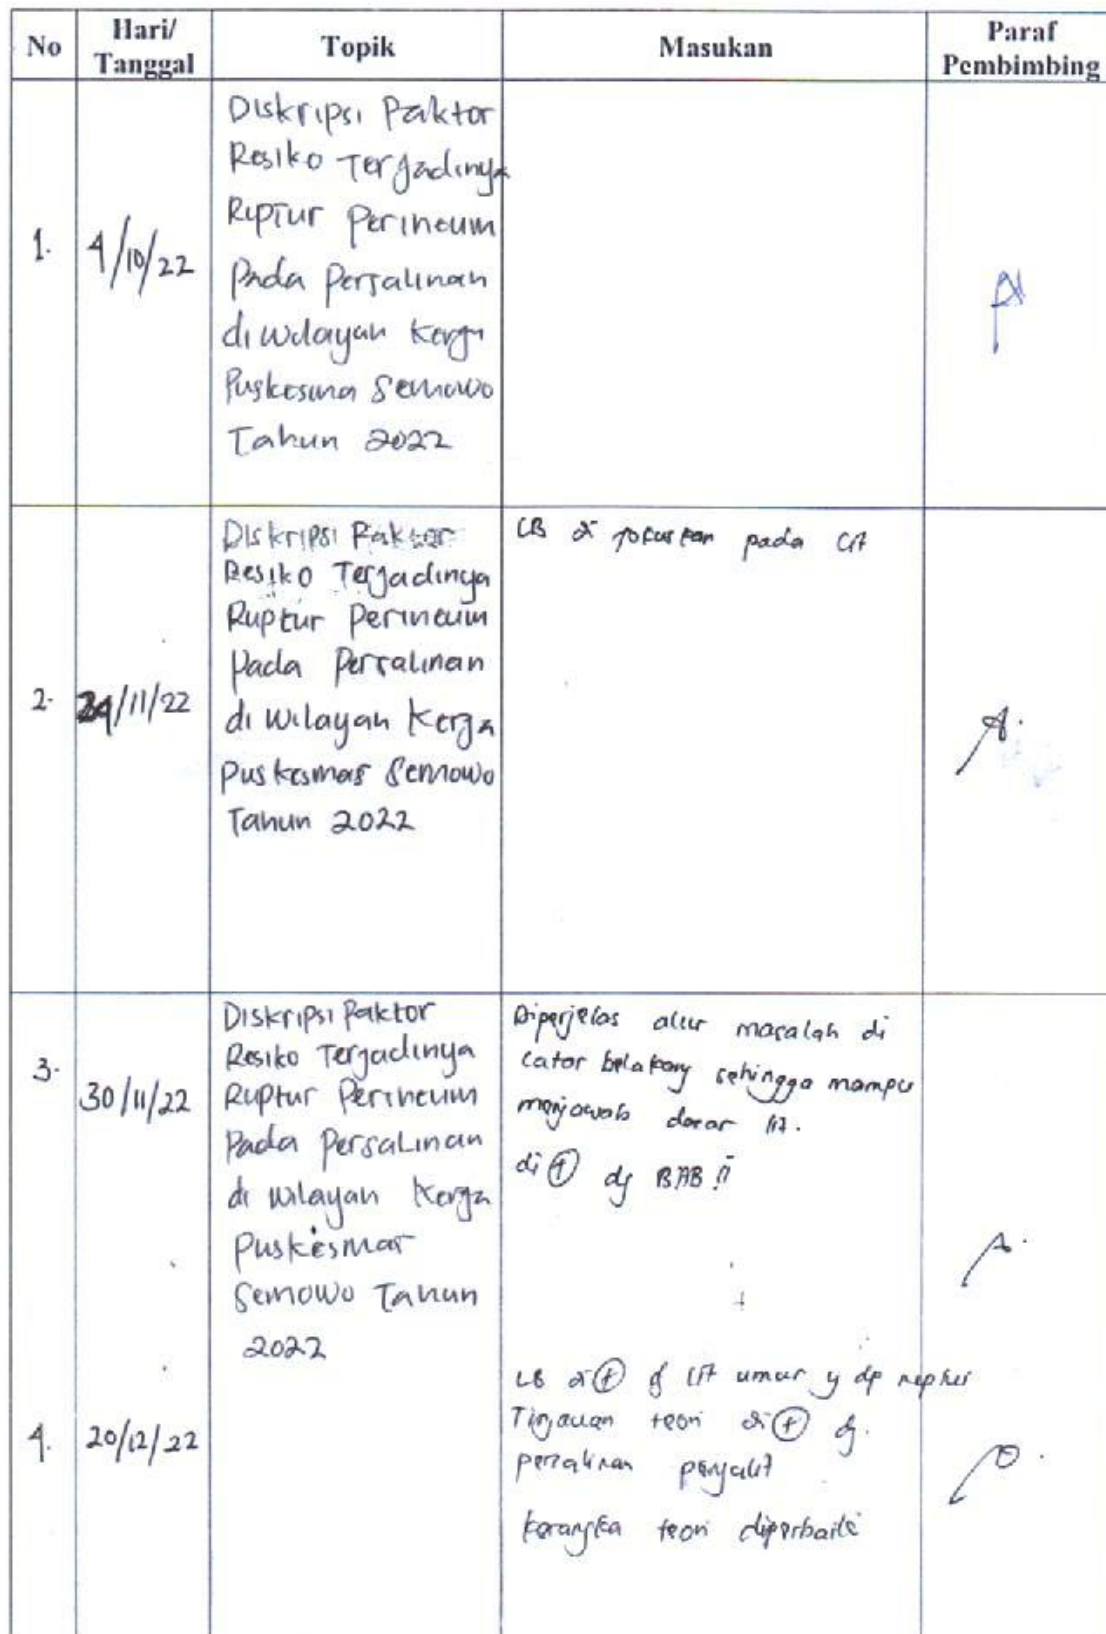 No
Hari/
Tanggal
Topik
Masukan
Paraf
Pembimbing
1.
4/10/22
Diskripsi Faktor
Resiko Terjadinya
Ruptur Perineum
Pada Persalinan
di wilayah Kerja
Puskesma Semowo
Tahun 2022
2.
24/11/22
Diskripsi Faktor
Resiko Terjadinya
Ruptur Perineum
Pada Persalinan
di wilayah Kerja
Puskesmas Semowo
Tahun 2022
LB di fokuskan pada
3.
30/11/22
Diskripsi Faktor
Resiko Terjadinya
Ruptur Perineum
Pada Persalinan
di wilayah Kerja
Puskesmas
Semowo Tahun
2022
Diperjelas alur masalah di
latar belakang sehingga mampu
menjawab dasar
di + dg BAB II
4.
20/12/22
LB di + dg umur y dp ruptur
Tinjauan teori di + dg.
persalinan penyulit
kerangka teori diperbaiki